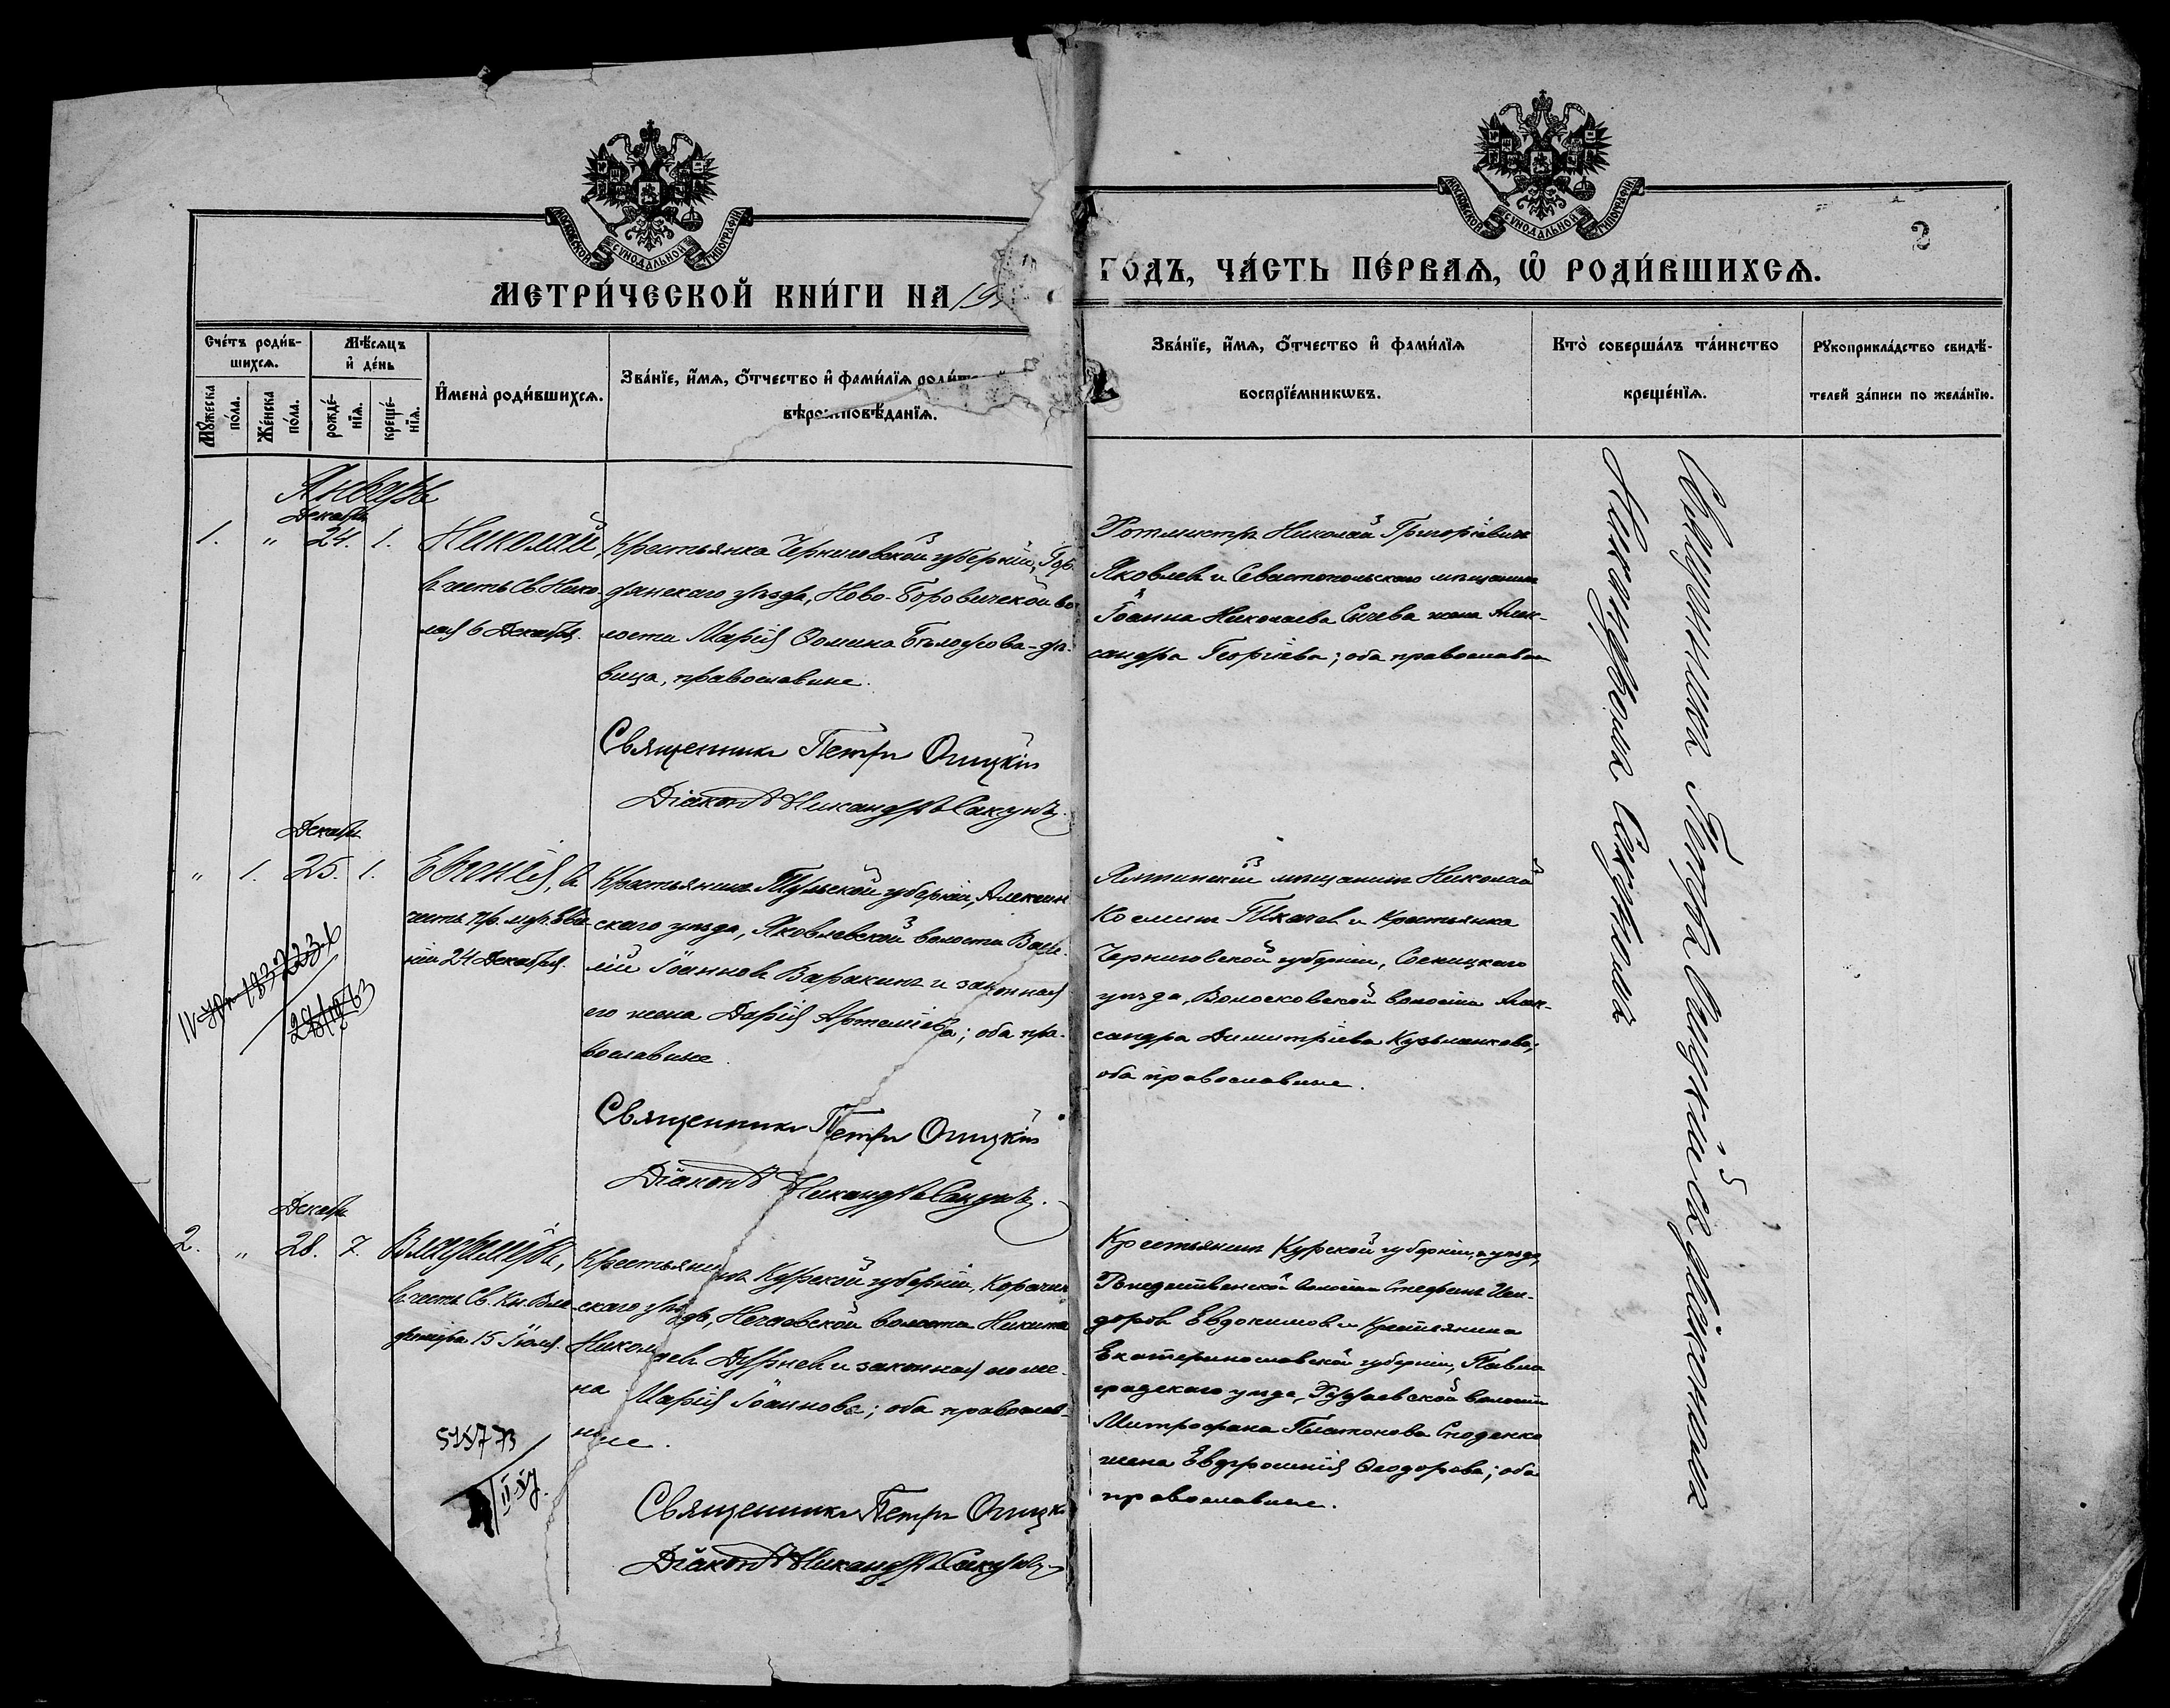 МОСКОВСКОЙ СѴНОДАЛЬНОЙ ТИПОГРАФІИ
МОСКОВСКОЙ СѴНОДАЛЬНОЙ ТИПОГРАФІИ
2
МЕТРИ́ЧЕСКОЙ КНИ́ГИ НА 19
ГО́ДЪ, ЧА́СТЬ ПЕ́РВАѦ, Ѽ РОДИ́ВШИХСѦ.
Сче́тъ роди́в-
шихсѧ.
Мꙋ́жеска
по́ла.
Же́нска
по́ла.
Мѣ́сѧцъ
и҆ де́нь
рожде́-
нїѧ.
креще́-
нїѧ.
И҆мена̀ роди́вшихсѧ.
Зва́нїе, и҆́мѧ, ѻ҆́тчество и҆ фами́лїѧ роди́т
вѣроисповѣ́данїѧ.
Зва́нїе, и҆́мѧ, ѻ҆́тчество и҆ фами́лїѧ
воспрїе́мникѡвъ.
Кто̀ соверша́лъ та́инство
креще́нїѧ.
Рꙋкоприкла́дство свидѣ́-
телей за́писи по жела́нїю.
Январь
Декабрь
1. " 24. 1.
Николай,
въ честь Св. Нико-
лая 6 Декабря.
Крестьянка Черниговской губерніи, Горо-
днянскаго уѣзда, Ново-Боровичской во-
лости Марія Ѳомина Бѣлодѣдова - дѣ-
вица, православные.
Священникъ Петръ Опицкій
Діаконъ Никандръ Сакунъ.
Ротмистръ Николай Григорьевичъ
Яковлевъ и Севастопольскаго мѣщанина
Іоанна Николаева Сычева жена Алек-
сандра Георгіева; оба православные
Декабрь
" 1. 25. 1.
Евгенія, въ
честь пр. муч. Евге-
ніи 24 Декабря.
Крестьянинъ Тульской губерніи, Алексин-
скаго уѣзда, Яковлевской волости Васи-
лій Іоанновъ Варакинъ и законная
его жена Дарія Артеміева; оба пра-
вославные.
Священникъ Петръ Опицкій
Діаконъ Никандръ Сакунъ.
Ялтинскій мѣщанинъ Николай
Косминъ Ткачевъ и крестьянка
Черниговской губерніи, Сосницкаго
уѣзда, Волосковской волости Алек-
сандра Димитріева Кузьменкова;
оба православные.
Декабрь
2. " 28. 7.
Владиміръ,
въ честь Св. Кн. Вла-
диміра 15 Іюля.
Крестьянинъ Курской губерніи, Корочан-
скаго уѣзда, Нечаевской волости Никита
Николаевъ Дурневъ и законная его же-
на Марія Іоаннова; оба православ-
ные.
Священникъ Петръ Опицкі
Діаконъ Никандръ Сакунъ
Крестьянинъ Курской губерніи, и уѣзда,
Рождественской волости Стефанъ Иси-
доровъ Евдокимовъ и крестьянина
Екатеринославской губерніи, Павло-
градскаго уѣзда, волости
Митрофана Платонова
жена Евфросинія Ѳеодорова; оба
православные.
Священникъ Петръ Опицкій съ діакономъ
Никандромъ Сакуномъ